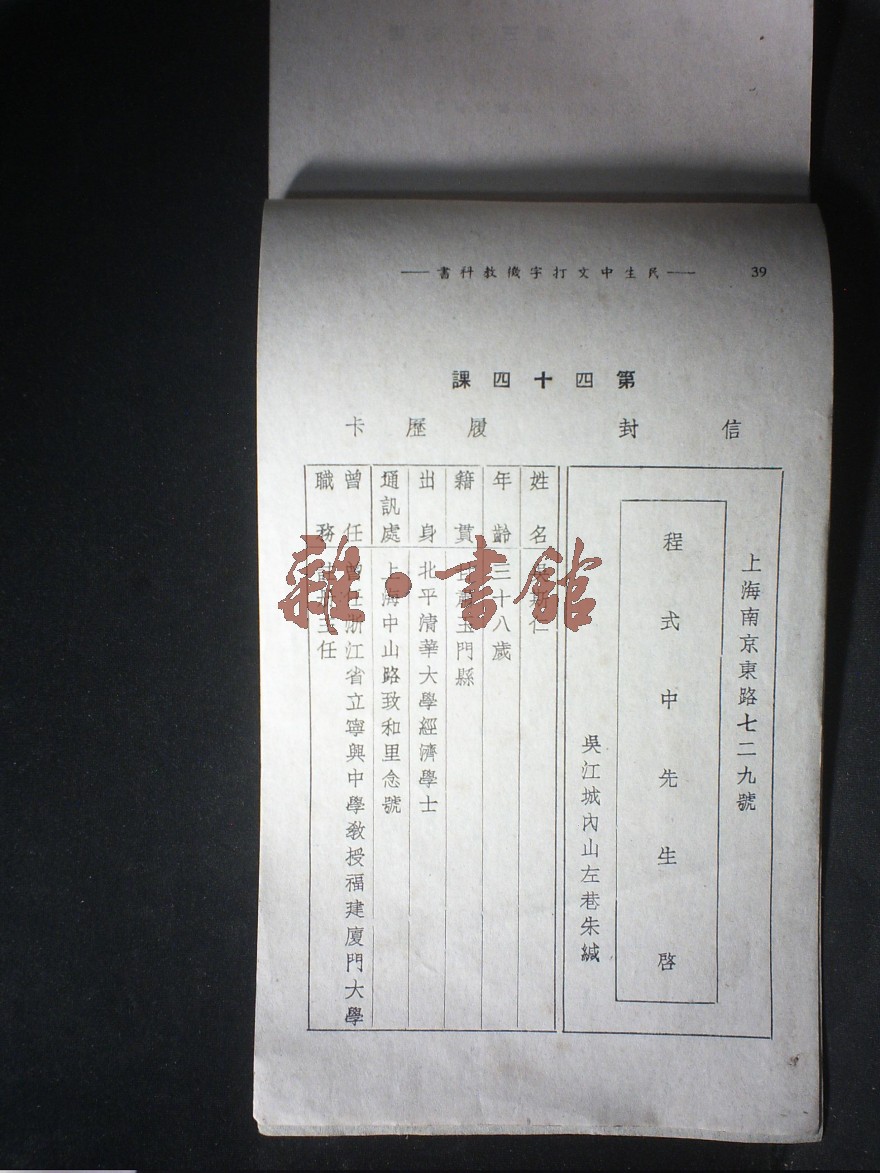 39
民生中文打字機教科書
第四十四課
信封
上海南京東路七二九號
程式中先生啓
吳江城內山左巷朱緘
履歷卡
姓名
斯仁
年齡
三十八歲
籍貫
肅玉門縣
出身
北平清華大學經濟學士
通訊處
上海中山路致和里念號
曾任職務
曾任浙江省立寧興中學教授福建廈門大學
主任
雜·書館